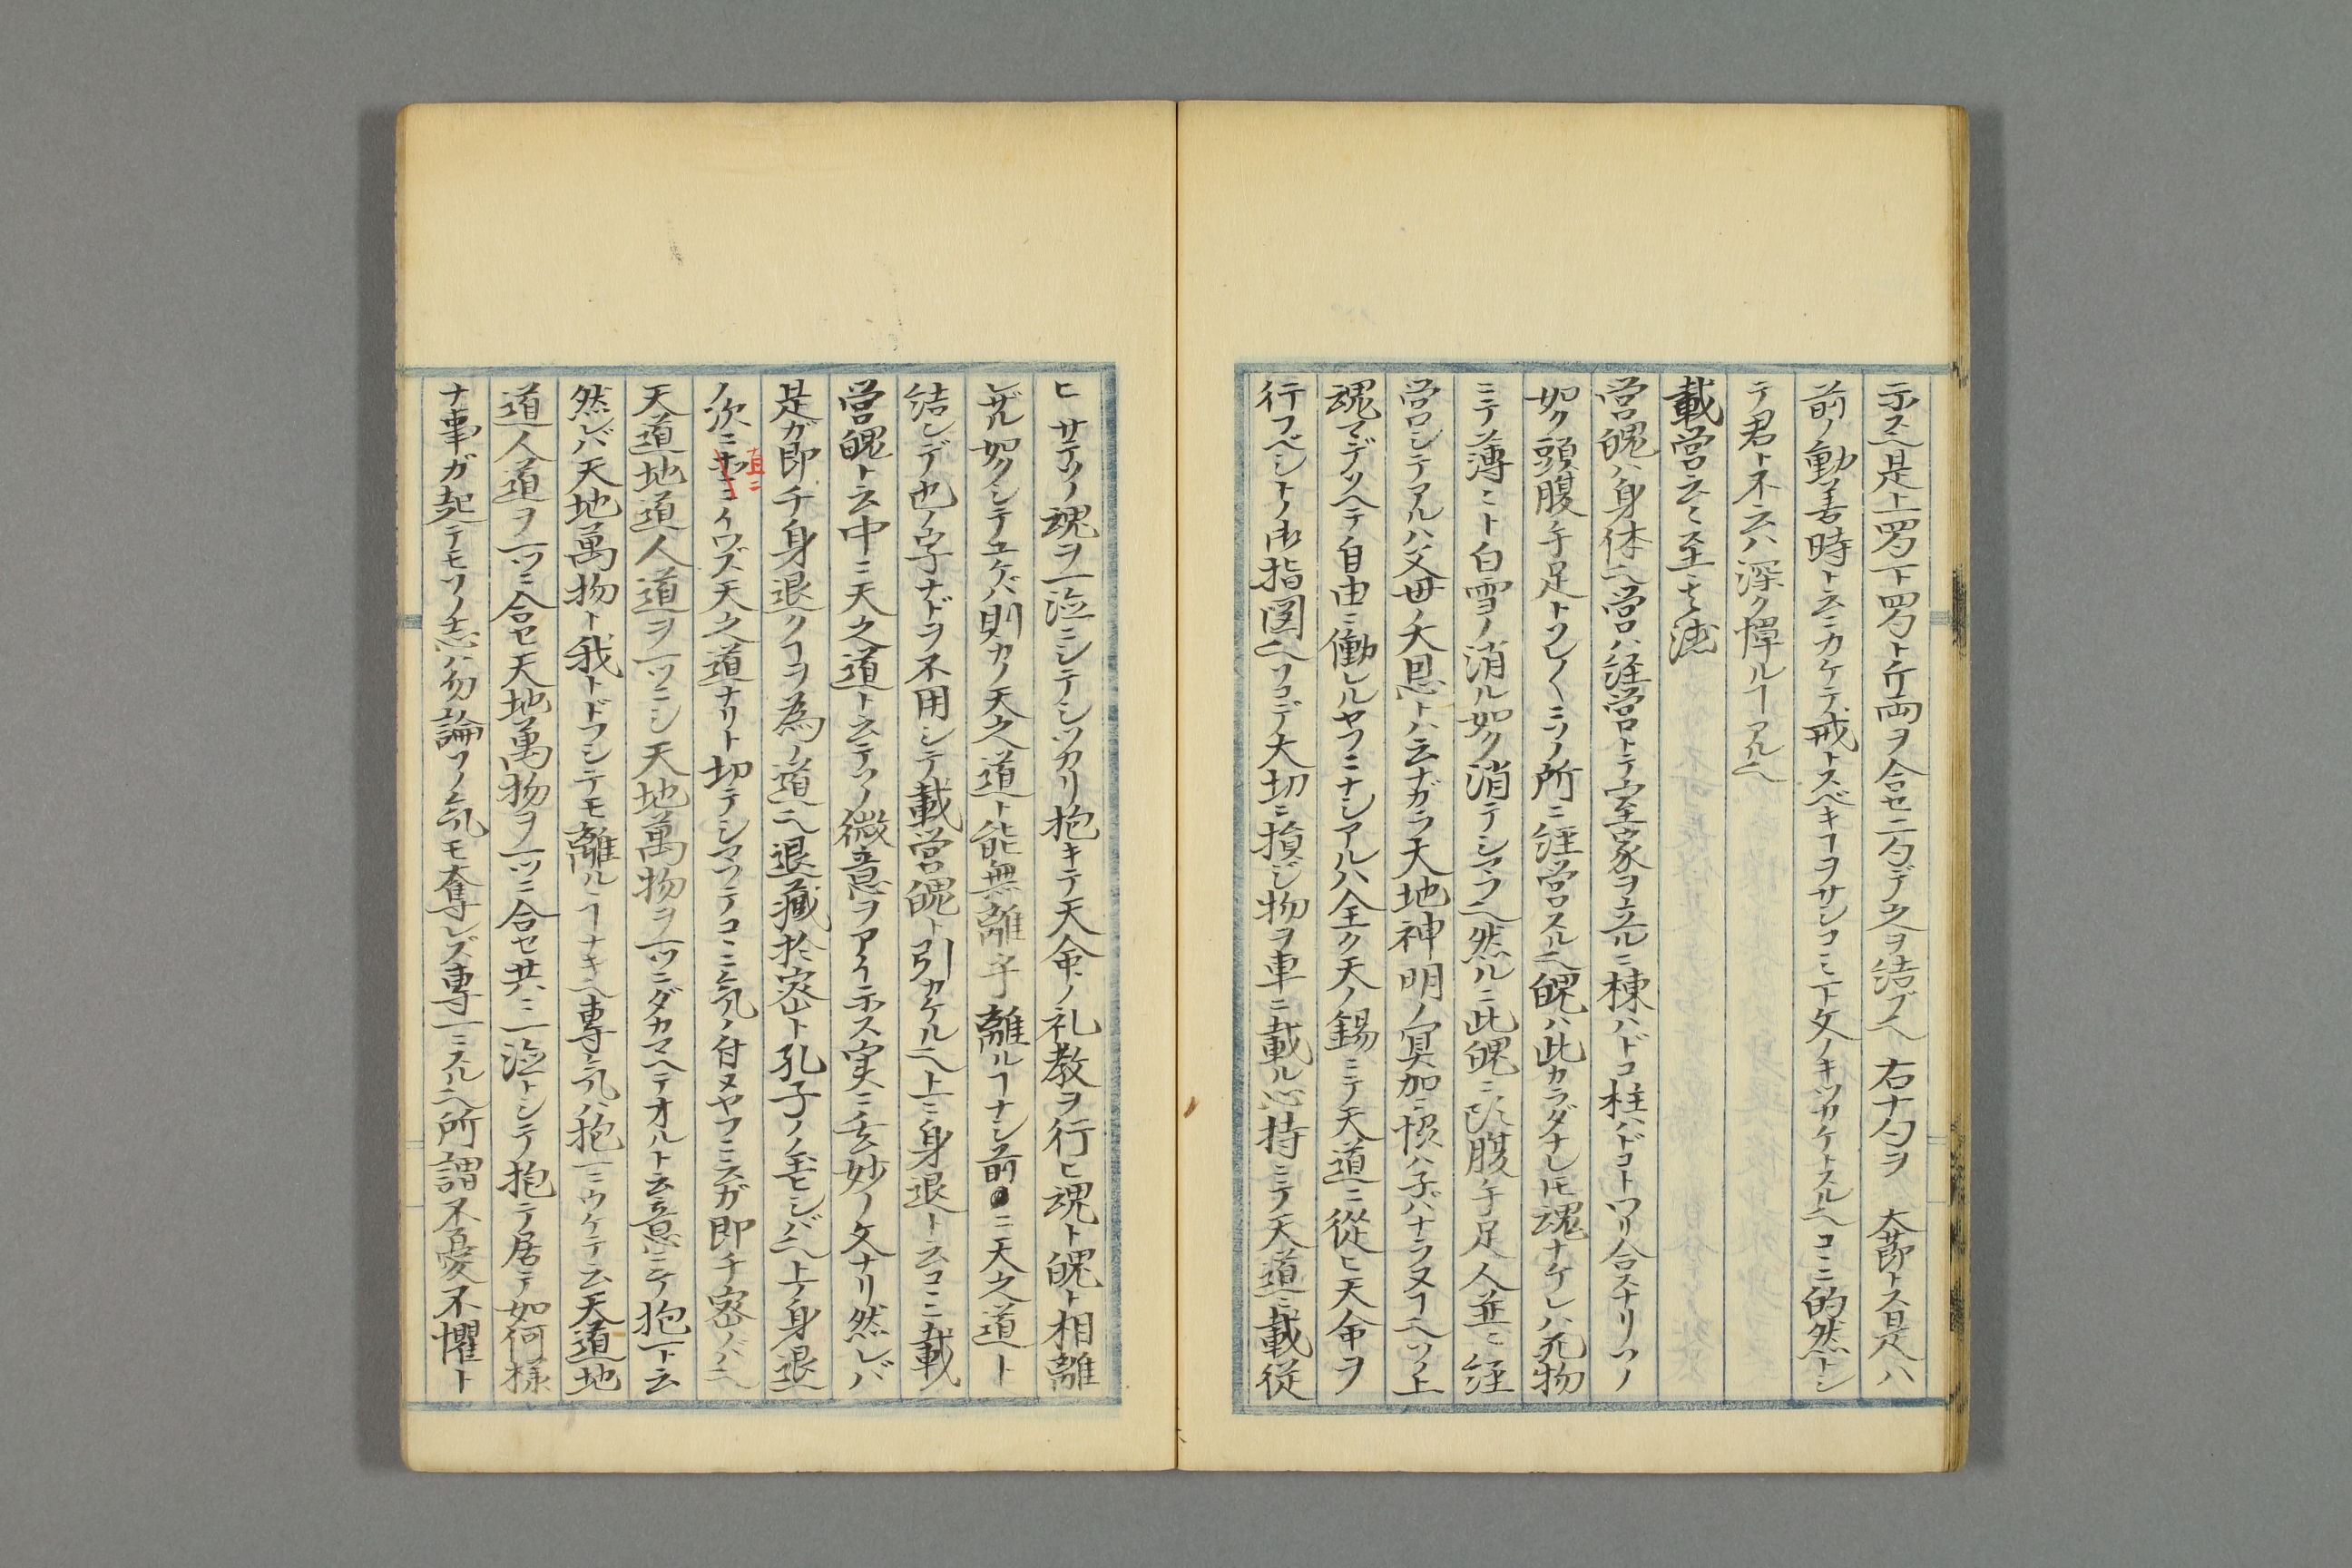 示ス也是上四句下四句ト斤両ヲ合セ二句デ之ヲ結ブ也右十句ヲ大節トス是ハ
前ノ動善時ト云ニカケテ戒トスベキヿヲサシコミ下文ノキツカケトスル也コヽニ的然トシ
テ君ト不云ハ深ク憚ルヿアル也
載営云々至玄徳
営魄ハ身体也営ハ経営トテ室家ヲ立ルニ棟ハドコ柱ハドコトワリ合スナリソノ
如ク頭腹手足トソレ〱ニソノ所ニ経営スル也魄ハ此カラダナレ𪜈魂ナケレハ死物
ニテ薄ミト白雪ノ消ル如ク消テシマフ也然ルニ此魄ニ頭腹手足人並ニ経
営シテアルハ父母ノ大恩トハ云ナガラ天地神明ノ冥加ニ根ハ子バナラヌヿ也ソノ上
魂マデソヘテ自由ニ働レルヤフニナシアルハ全ク天ノ錫ニテ天道ニ從ヒ天命ヲ
行フベシトノ御指図也ソコデ大切ニ損ジ物ヲ車ニ載ル心持ニテ天道ニ載従
ヒサテソノ魂ヲ一澁ニシテシツカリ抱キテ天命ノ礼教ヲ行ヒ魂ト魄ト相離
レザル如クシテユケバ則カノ天之道ト能無離乎離ルヿナシ前ニ天之道ト
結ンデ也ノ字ナドヲ不用シテ載営魄ト引カケル也上ニ身退ト云コヽニ載
営魄ト云中ニ天之道ト云テソノ微意ヲアイ示ス実ニ玄妙ノ文ナリ然レバ
是ガ即チ身退クヿヲ為ノ道也退藏於密ト孔子ノ玉ヒシバ也上テ身退
ノ次ニ直ニイワズ天之道ナリト切テシマフテコヽニ気ノ付ヌヤフニスガ即チ密ノバ也
天道地道人道ヲ一ツニシ天地萬物ヲ一ツニダカマヘテオルト云意ニテ抱一ト云
然レバ天地萬物ト我トドフシテモ離ルヽヿナキ也專気ハ抱一ニウケテ云天道地
道人道ヲ一ツニ合セ天地萬物ヲ一ツニ合セ共ニ一澁トシテ抱テ居テ如何様
ナ事ガ起テモソノ志ハ勿論ソノ気モ奪レズ專一ニスル也所謂不憂不懼ト